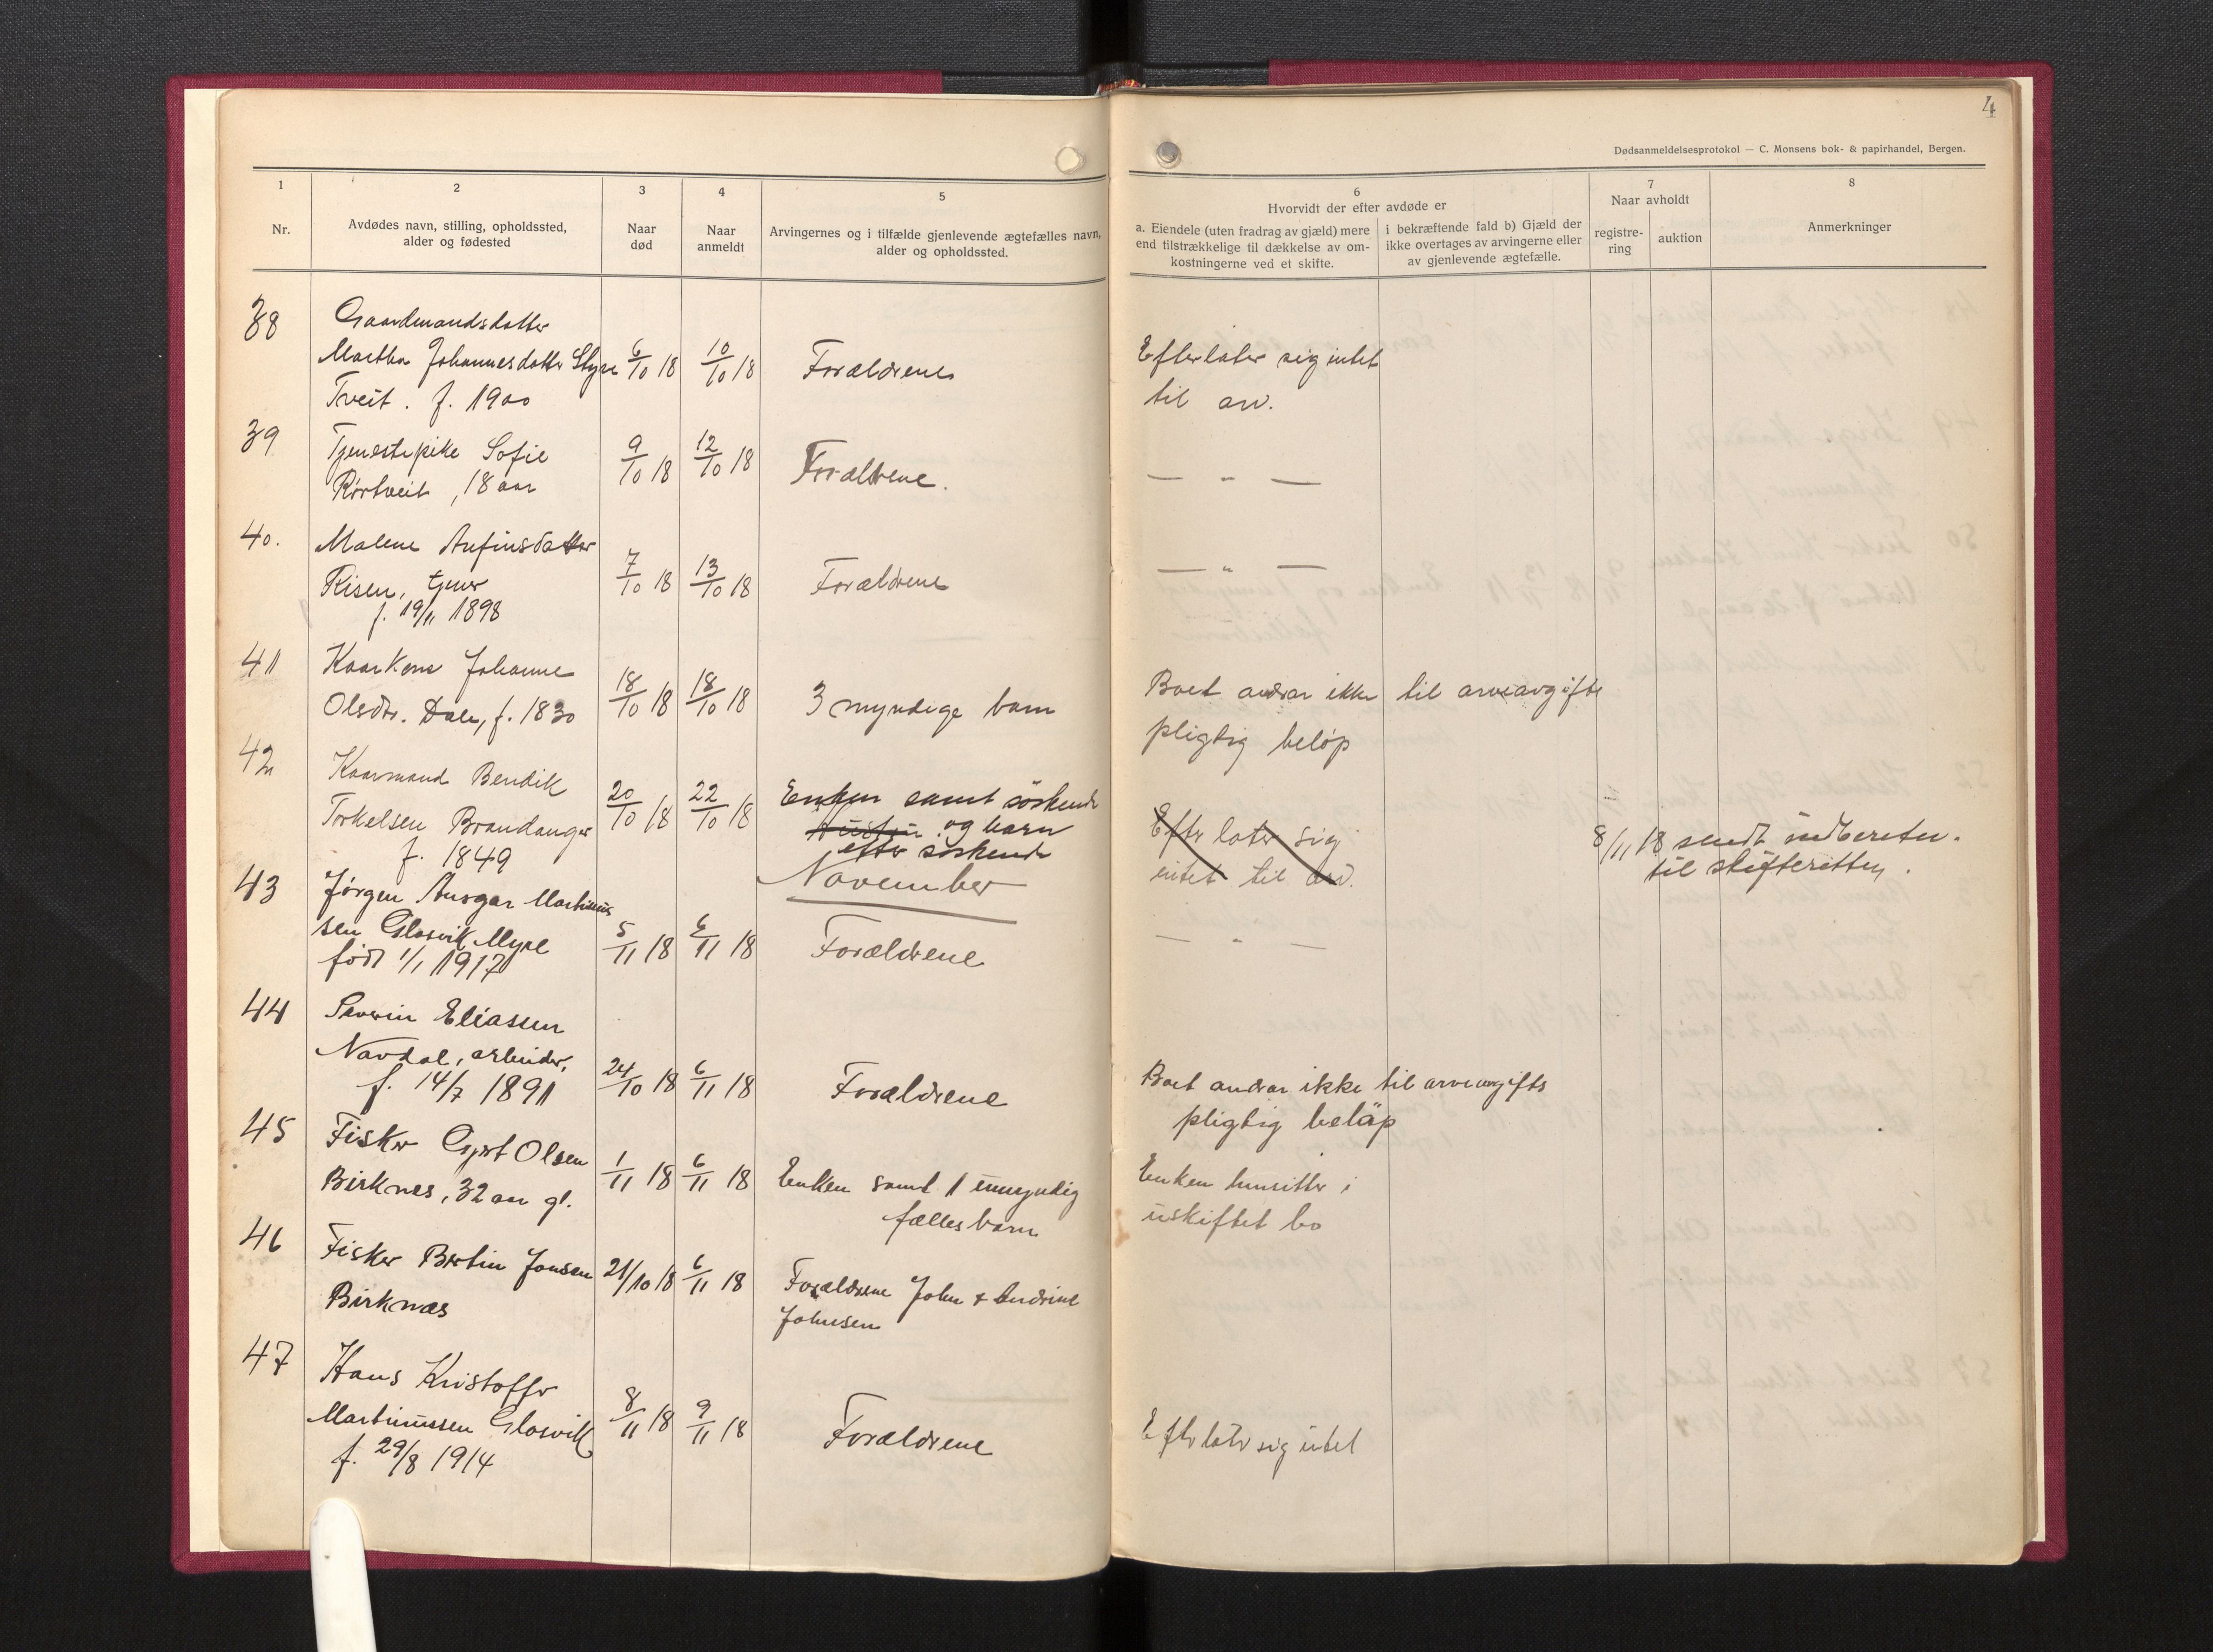 4
Dødsanmeldelsesprotokol — C. Monsens bok- & papirhandel, Bergen.
1
Nr.
2
Avdødes navn, stilling, opholdssted,
alder og fødested
3
Naar
død
4
Naar
anmeldt
5
Arvingernes og i tilfælde gjenlevende ægtefælles navn,
alder og opholdssted.
6
Hvorvidt der efter avdøde er
a. Eiendele (uten fradrag av gjæld) mere
end tilstrækkelige til dækkelse av om-
kostningerne ved et skifte.
i bekræftende fald b) Gjæld der
ikke overtages av arvingerne eller
av gjenlevende ægtefælle.
7
Naar avholdt
registre-
ring
auktion
8
Anmerkninger
38
Gaardmandsdatter
Martha Johannesdatter Styve
Tveit. f. 1900
6/10 18
10/10 18
Forældrene
Efterlater sig intet
til arv.
39
Tjenestepike Sofie
Rørtveit, 18 aar
9/10 18
12/10 18
Forældrene.
— " —
40.
Malene Anfinsdatter
Risen, tjener
f. 19/11 1898
7/10 18
13/10 18
Forældrene
— " —
41
Kaarkone Johanne
Olsdtr. Dale, f. 1830
18/10 18
18/10 18
3 myndige barn
Boet andrar ikke til arveavgifts
pligtig beløp
42
Kaarmand Bendik
Torkelsen Brandanger
f. 1849
20/10 18
22/10 18
Enken samt søskende
og barn
efter søskende
Efterlater sig
intet til arv.
8/11 18 sendt indberetn.
til skifteretten.
November
43
Jørgen Ansgar Martinus
sen Glosvik Myre
født 1/1 1917
5/11 18
6/11 18
Forældrene
— " —
44
Severin Eliassen
Navdal, arbeider,
f. 14/7 1891
24/10 18
6/11 18
Forældrene
Boet andrar ikke til arveavgifts
pligtig beløp
45
Fisker Olsen
Birknes, 32 aar gl.
1/11 18
6/11 18
Enken samt 1 umyndig
fælles barn
Enken hensitter i
uskiftet bo
46
Fisker Bertin Jonsen
Birknæs
21/10 18
6/11 18
Forældrene John & Andrine
Johnsen
47
Hans Kristoffer
Martinussen Glosvik
f. 29/8 1914
8/11 18
9/11 18
Forældrene
Efterlater sig intet